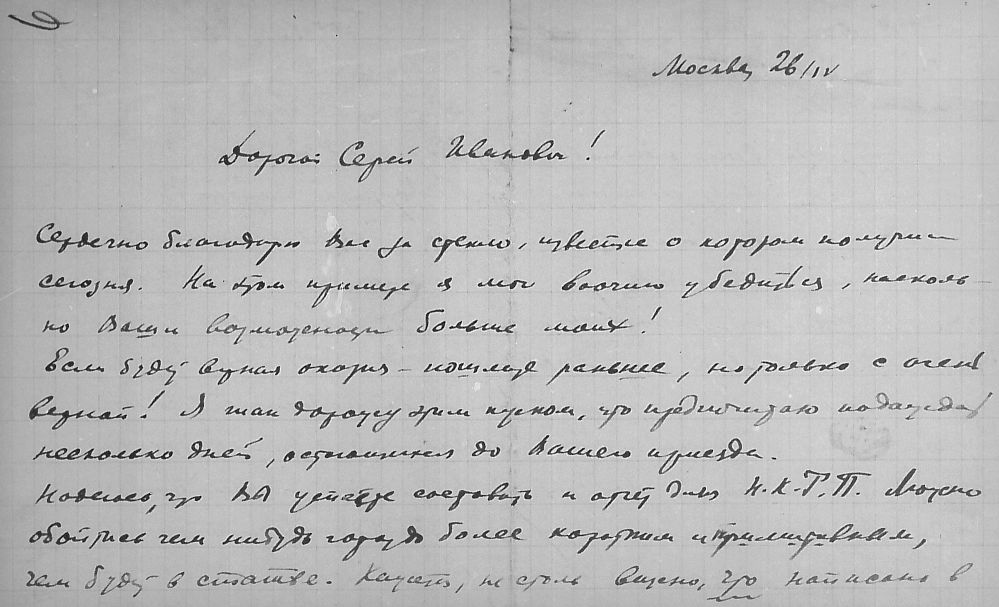 Москва, 26/IV
Дорогой Сергей Иванович!
Сердечно благодарю Вас за стекло, известие о котором получил
сегодня. На этом примере я мог воочию убедиться, насколь-
ко Ваши возможности больше моих!
Если будет верная оказия – пошлите раньше, но только с очень
верной! Я так дорожу этим куском, что предпочитаю подождать
несколько дней, оставшихся до Вашего приезда.
Надеюсь, что Вы успеете составить и отчет для Н.К.Т.П. Можно
обойтись чем нибудь гораздо более коротким и примитивным,
чем будет в статье. Кажется, не столь важно, что написано в